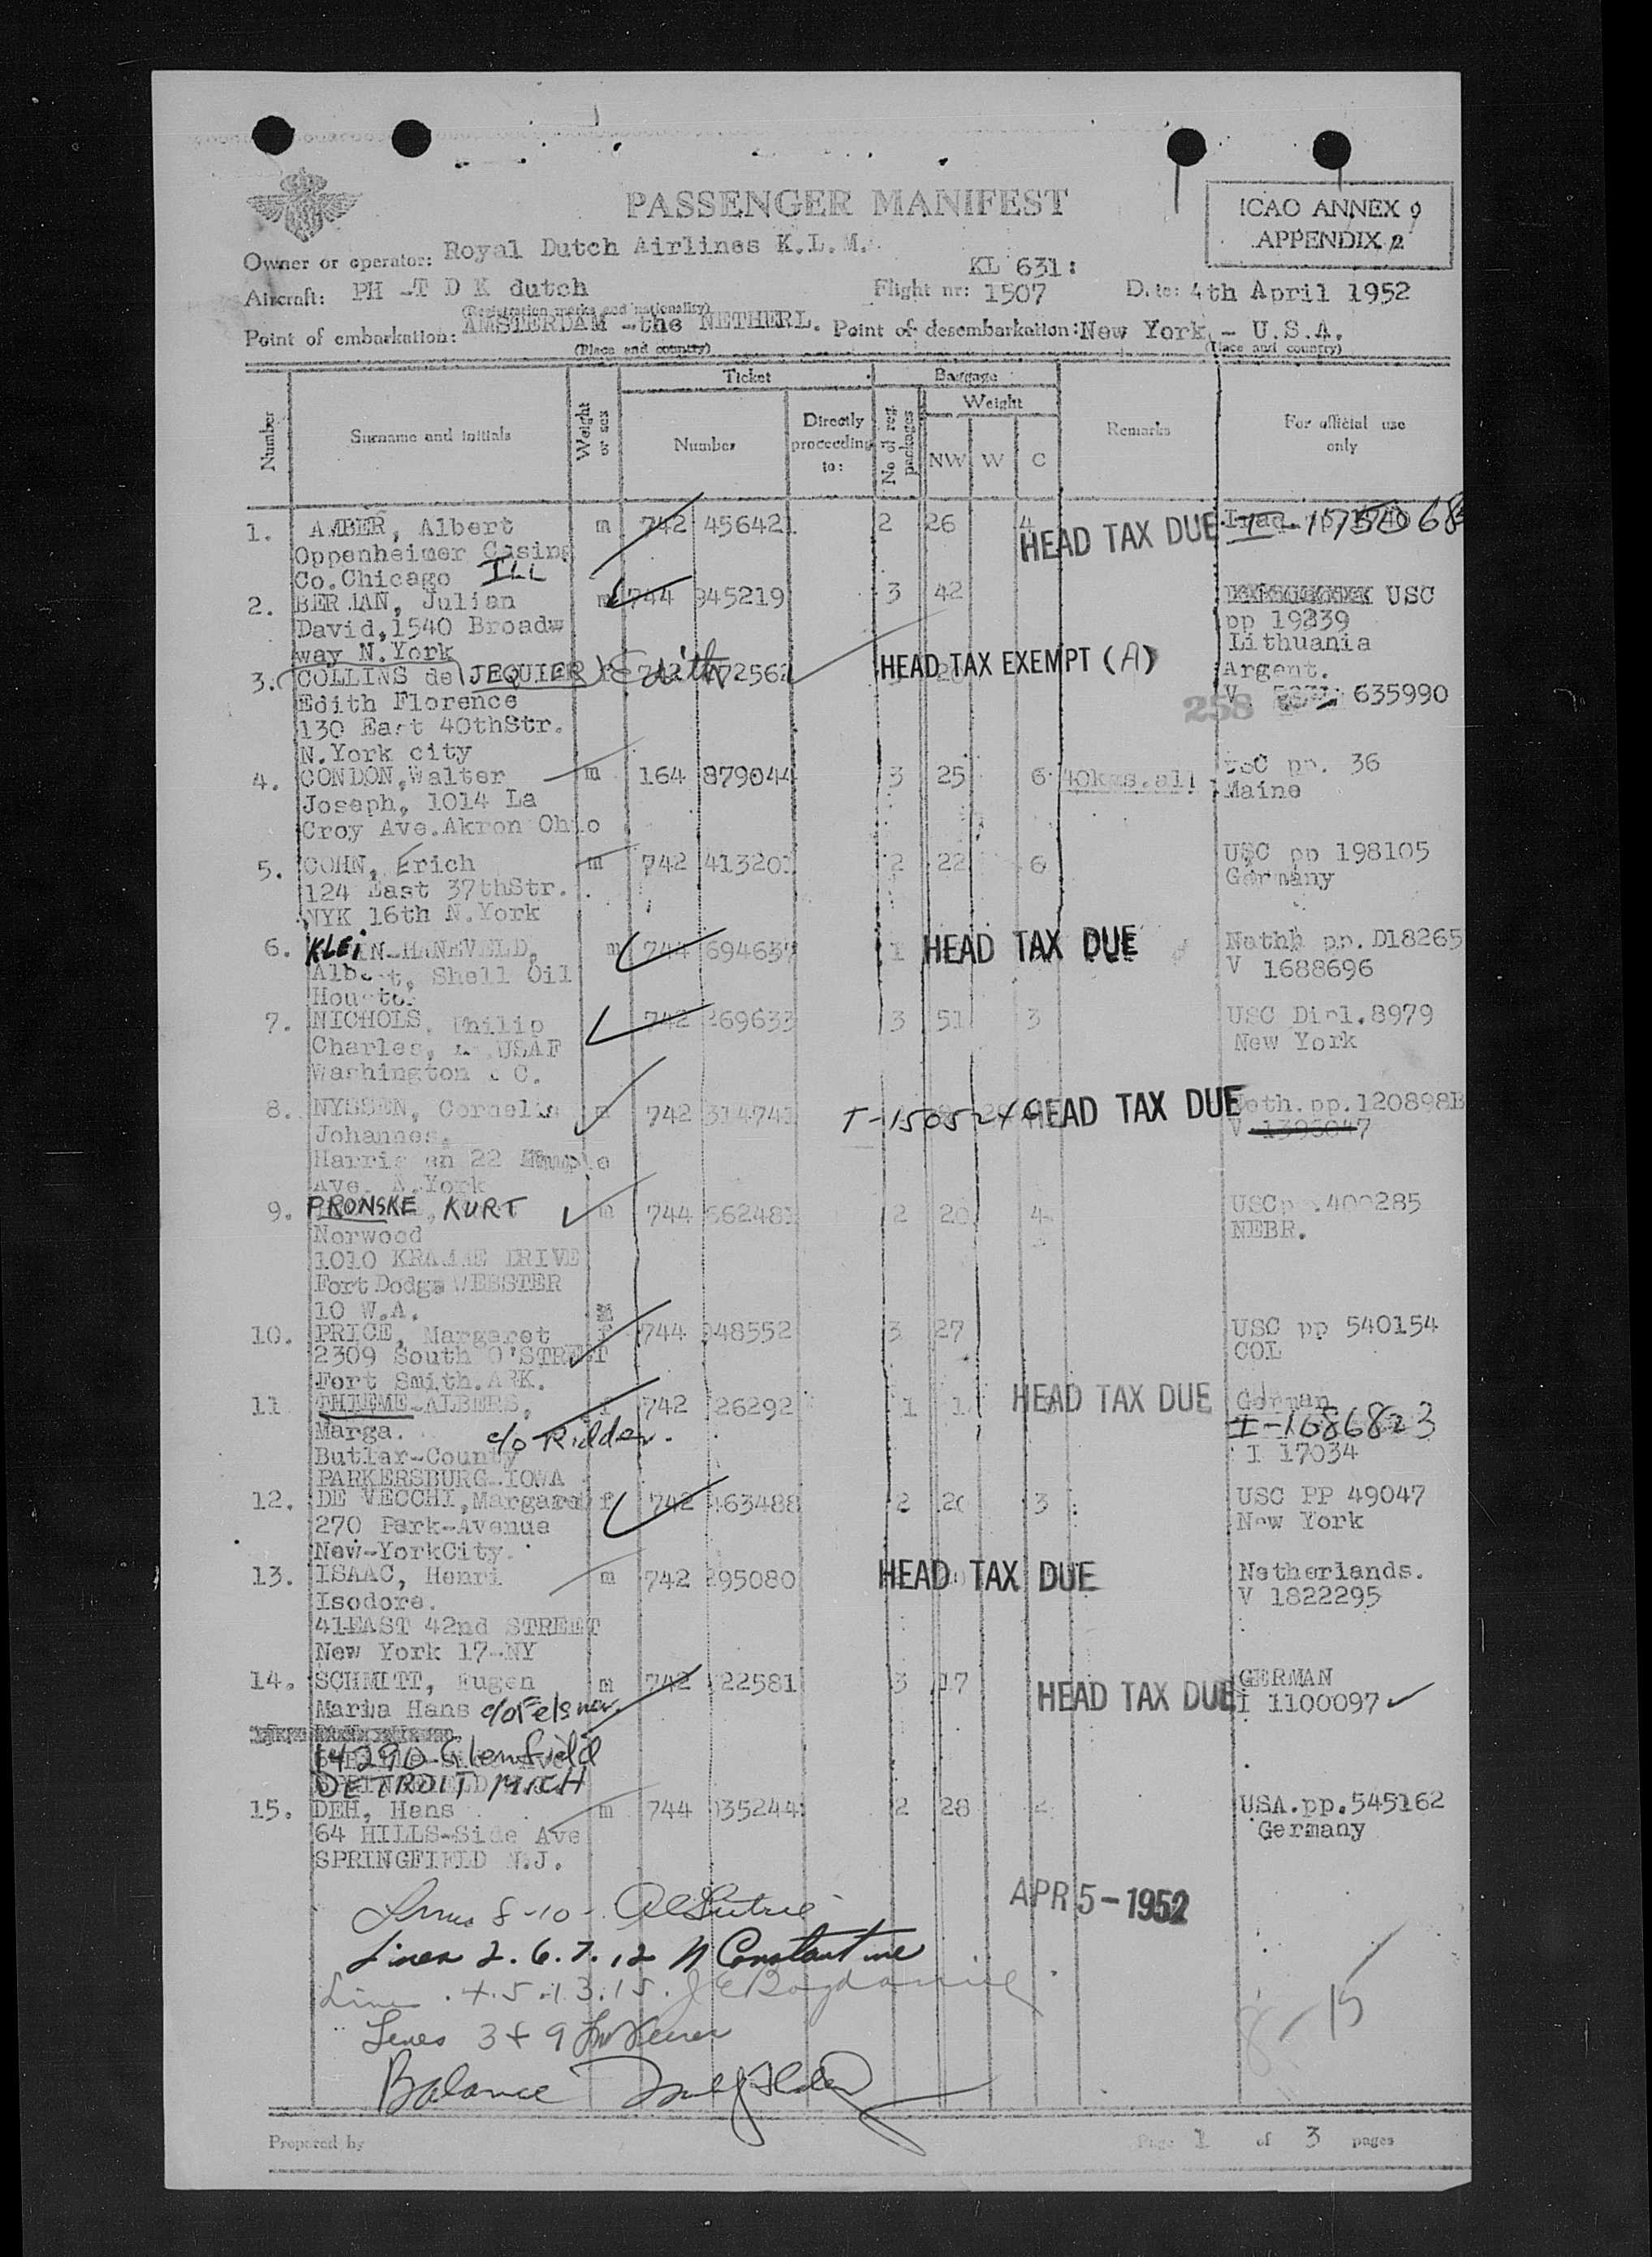 PASSENGER MANIFEST
ICAO ANNEX 9
APPENDIX 2
Owner or operator: Royal Dutch Airlines K.L.M.
KL 631:
Aircraft: PH -T D K dutch Flight nr: 1507 Date: 4th April 1952
(Registration marks and nationality)
Point of embarkation: AMSTERDAM -the NETHERL. Point of desembarkation: New York - U.S.A.
(Place and country) (Place and country)
Number Surname and initials Weight or sex Ticket Number Directly proceeding to: Baggage No of reg. packages Weight NW W C Remarks For official use only
1. AMBER, Albert m 742 456421 2 26 4 HEAD TAX DUE
Oppenheimer Casing
Co.Chicago ILL
2. BERMAN, Julian m 744 945219 3 42 USC
David,1540 Broadw pp 19239
way N.York Lithuania
3. COLLINS de (JEQUIER) Edith 742 72562 HEAD TAX EXEMPT (A) Argent.
Edith Florence 258 V 635990
130 East 40thStr.
N.York city
4. CONDON,Walter m 164 879044 3 25 6 40kgs.all pp. 36
Joseph, 1014 La Maine
Croy Ave.Akron Ohio
5. COHN, Erich m 742 413201 2 22 6 USC pp 198105
124 East 37thStr. Germany
NYK 16th N.York
6. KLEIN-HANEVELD, m 744 694637 1 HEAD TAX DUE Neth pp.D18265
Albert, Shell Oil V 1688696
Houston
7. NICHOLS, Philip 742 269633 3 51 3 USC Dipl.8979
Charles, USAF New York
Washington C.
8. NYSSEN, Cornelis m 742 314741 T-150524 HEAD TAX DUE Neth.pp.120898B
Johannes, V 1395047
Harrison 22
Ave. N.York
9. PRONSKE, KURT m 744 662481 2 20 4 USC 400285
Norwood NEBR.
1010 DRIVE
Fort Dodge WEBSTER
10 W.A.
10. PRICE, Margaret f 744 948552 3 27 USC pp 540154
2309 South O'STREET COL
Fort Smith.ARK.
11 THIEME-ALBERS, f 742 26292 1 1 HEAD TAX DUE German
Marga. c/o Ridder. I-1686823
Butlar-County I 17034
PARKERSBURG-IOWA
12. DE VECCHI,Margaret f 742 463488 2 20 3 USC PP 49047
270 Park-Avenue New York
New-YorkCity.
13. ISAAC, Henri m 742 295080 HEAD TAX DUE Netherlands.
Isodore. V 1822295
41EAST 42nd STREET
New York 17-NY
14. SCHMITT, Eugen m 742 22581 3 17 HEAD TAX DUE GERMAN
Maria Hans c/o Felsner. I 1100097
14290-Glenfield
DETROIT MICH
15. DEH, Hans m 744 035244 2 28 4 USA.pp.545162
64 HILLS-Side Ave Germany
SPRINGFIELD N.J.
APR 5-1952
Lines 8-10-
Lines 2.6.7.12 N Constantine
Lines 4.5.13.15.
Lines 3 & 9
8-15
Balance
Prepared by Page 1 of 3 pages